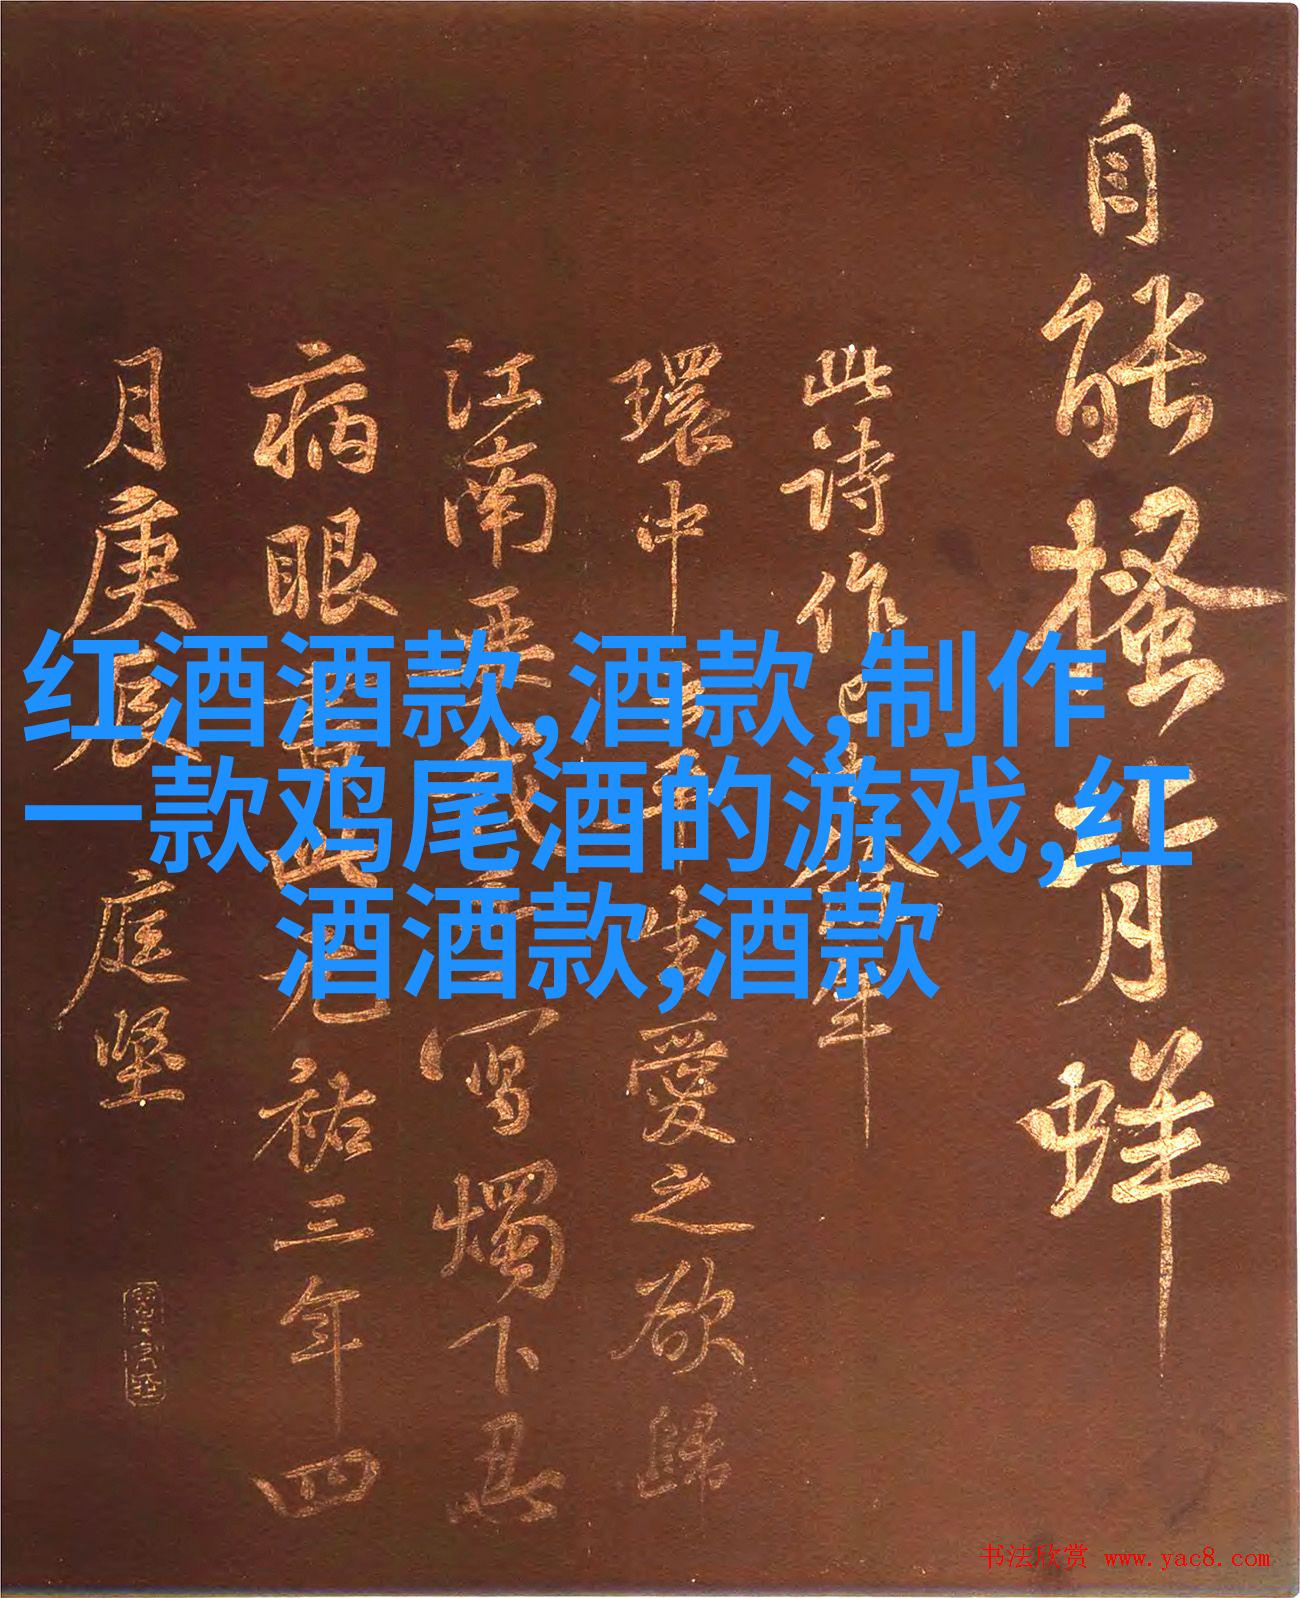 自能搔背蛘
此詩作
年
環中
生愛之欲歸
江南
寫燭下忍
病眼
元祐三年四
月庚辰
庭堅
红酒酒款,酒款,制作
一款鸡尾酒的游戏,红
酒酒款,酒款
书法欣赏 www.yac8.com